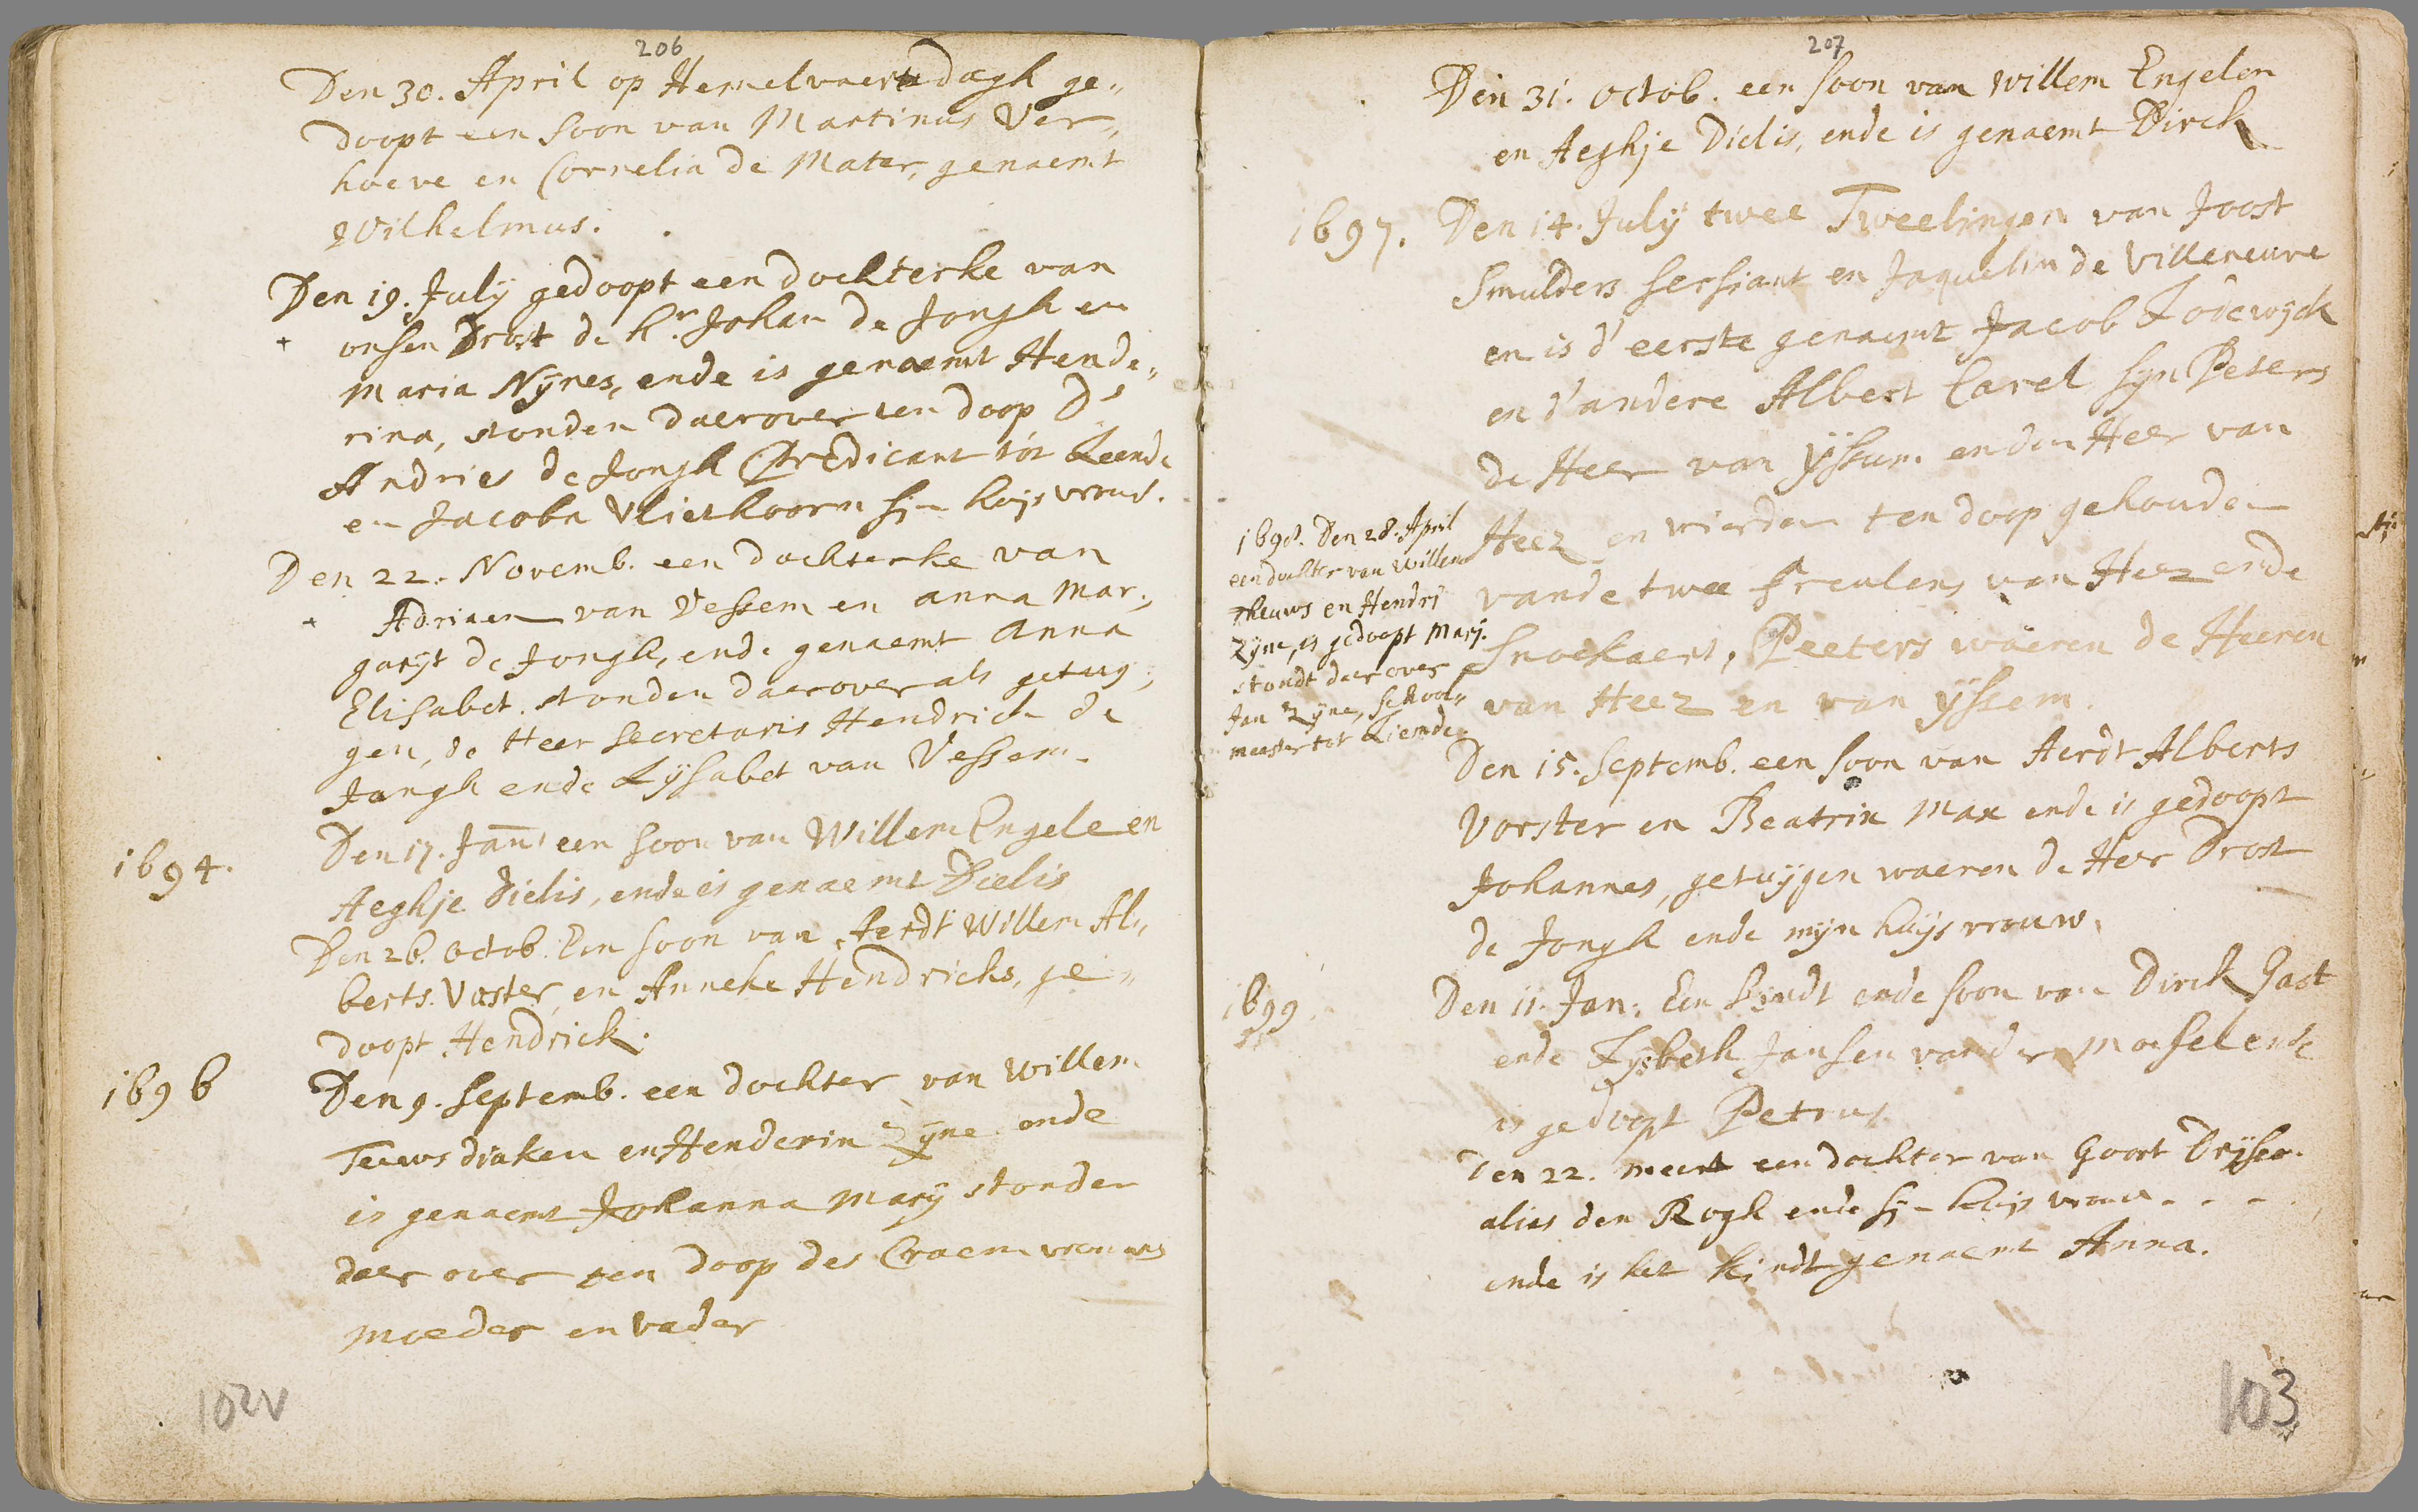 206
Den 30. April op Hemelvaertsdagh ge„
doopt een soon van Martinus Ver„
hoeve en Cornelia de Mater, genaemt
Wilhelmus.
Den 19. Julÿ gedoopt een dochterke van
+ onsen Drost de hr. Johan de Jongh en
Maria Nÿnes, ende is genaemt Hende„
rina, stonden daerover ten doop Ds
Andries de Jongh Predicant tot Leende
en Jacoba Vliethoorn sijn huijsvrouw.
Den 22. Novemb. een dochterke van
+ Adriaen van Vessem en anna Mar„
garijt de Jongh, ende genaemt Anna
Elisabet. stonden daerover als getuÿ„
gen, de Heer secretaris Hendrick de
Jongh ende Lÿsabet van Vessem.
1694. Den 17. Jan̄ een soon van Willem Engele en
Aeghje Dielis, ende is genaemt Dielis
Den 26. Octob. Een soon van Aerdt Willem Al„
berts. Voster, en Anneke Hendricks, ge„
doopt Hendrick.
1696 Den 9. septemb. een dochter van Willem
Teuws diaken en Henderin Zÿne ende
is genaemt Johanna Marÿ stonden
daer over ten doop des Craemvrouws
moeder en vader
102v
207
Den 31. octob. een soon van Willem Engelen
en Aeghje Dielis, ende is genaemt Dirck
1697. Den 14. Julÿ twee Tweelingen van Joost
Smulders sersiant en Jaquelin de Villeneuve
en is d'eerste genaemt Jacob Lodewÿck
en d'andere Albert Carel sijn Peters
de Heer van ÿssum en den Heer van
Heez en wierden ten doop gehouden
vande twee freulens van Heez ende
Snoekaert, Peeters waeren de Heeren
van Heez en van ÿssem.
1698. Den 28. April
een dochter van Willem
Theuws en Hendri
Zÿne, is gedoopt Marÿ.
stondt daer over
Jan Zÿne, school„
meester tot Liemde.
Den 15. Septemb. een soon van Aerdt Alberts
Vorster en Beatrix Max ende is gedoopt
Johannes, getuÿgen waeren de Heer Drost
de Jongh ende mijn huÿsvrouw.
1699 Den 11. Jan: Een kindt ende soon van Dirck Gast
ende Lÿsbeth Jansen vander Mosel ende
is gedoopt Petrus
Den 22. meert een dochter van Goort Drÿsen
alias den Rogh ende sijn huijsvrouw - - -
ende is het kindt genaemt Anna.
103